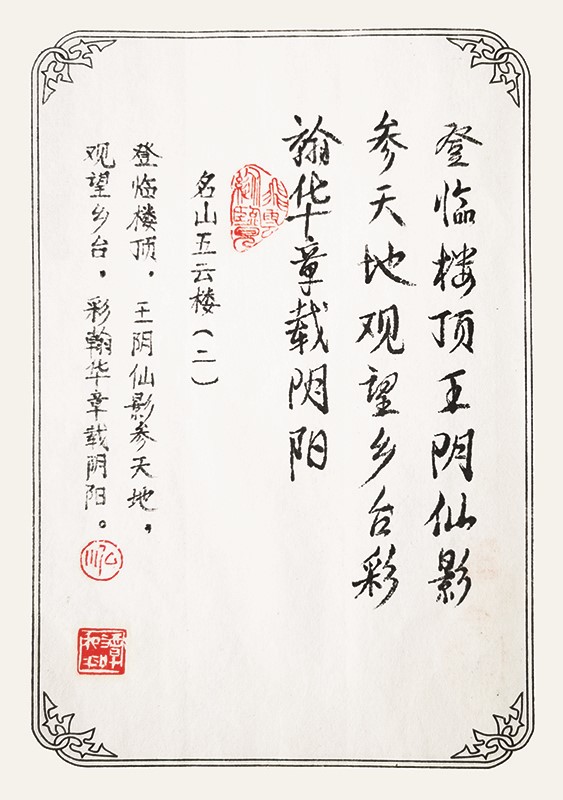 登临楼顶王阴仙影
参天地观望乡台彩
翰华章载阴阳
名山五云楼(二)
登临楼顶，王阴仙影参天地，
观望乡台，彩翰华章载阴阳。